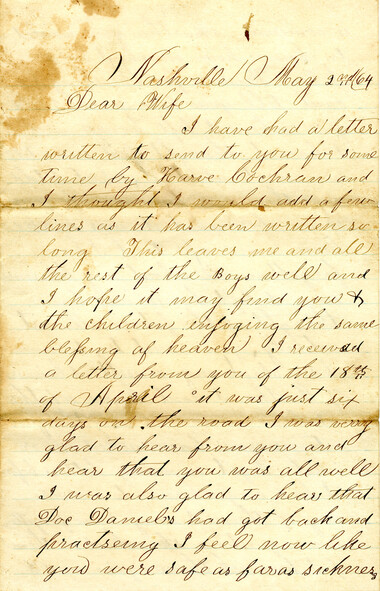 Nashville May 2nd/64
Dear Wife
I have had a letter
written to send to you for some
time by Harve Cochran and
I thought I would add a few
lines as it has been written so
long This leaves me and all
the rest of the Boys well and
I hope it may find you &
the children enjoying the same
blessing of heaven I received
a letter from you of the 18th
of April it was just six
days on the road I was very
glad to hear from you and
hear that you was all well
I was also glad to hear that
Doc Daniels had got back and
practseing I feel now like
you were safe as far as sickness